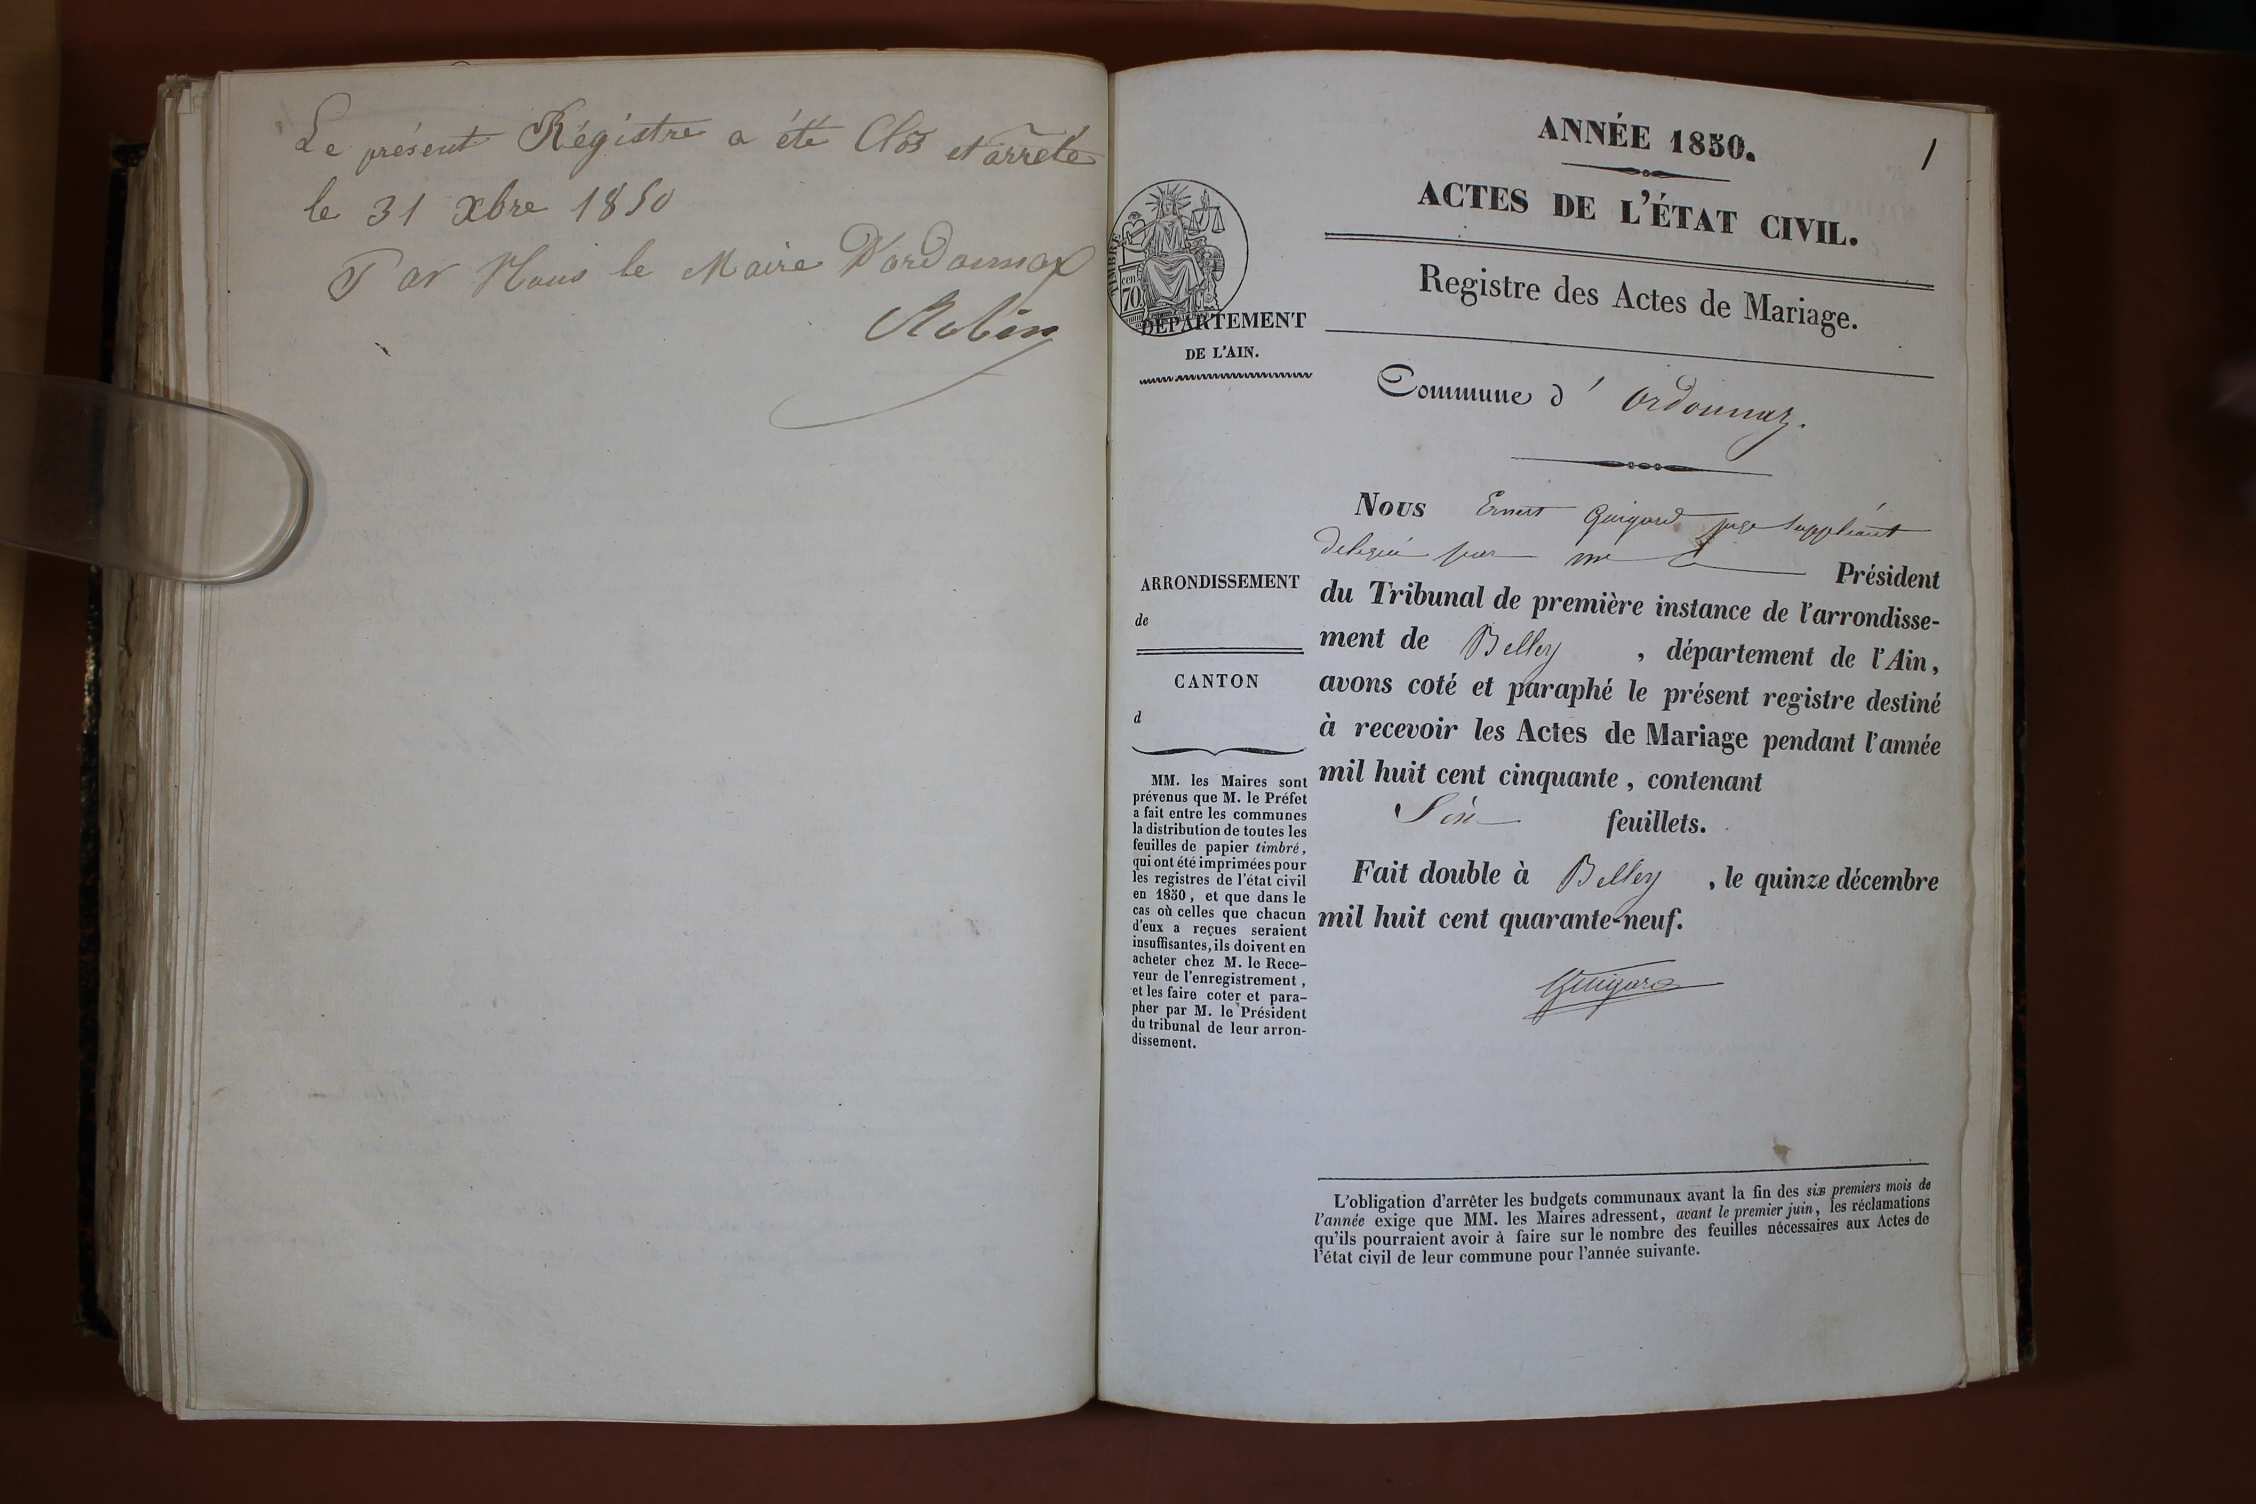 Le présent Régistre a été Clos et arrêté
le 31 Xbre 1850
Par Nous le Maire D'ordonnax
Robin
1
ANNÉE 1850.
ACTES DE L'ÉTAT CIVIL.
Registre des Actes de Mariage.
TIMBRE
cen
70
DÉPARTEMENT
DE L'AIN.
Commune d' ordonnaz.
ARRONDISSEMENT
de
CANTON
d
MM. les Maires sont
prévenus que M. le Préfet
a fait entre les communes
la distribution de toutes les
feuilles de papier timbré,
qui ont été imprimées pour
les registres de l'état civil
en 1850, et que dans le
cas où celles que chacun
d'eux a reçues seraient
insuffisantes, ils doivent en
acheter chez M. le Rece-
veur de l'enregistrement,
et les faire coter et para-
pher par M. le Président
du tribunal de leur arron-
dissement.
Nous Ernest Guigard juge Suppléant
delegué par mr le Président
du Tribunal de première instance de l'arrondisse-
ment de Belley , département de l'Ain,
avons coté et paraphé le présent registre destiné
à recevoir les Actes de Mariage pendant l'année
mil huit cent cinquante, contenant
Six feuillets.
Fait double à Belley , le quinze décembre
mil huit cent quarante-neuf.
Guigard
L'obligation d'arrêter les budgets communaux avant la fin des six premiers mois de
l'année exige que MM. les Maires adressent, avant le premier juin, les réclamations
qu'ils pourraient avoir à faire sur le nombre des feuilles nécessaires aux Actes de
l'état civil de leur commune pour l'année suivante.